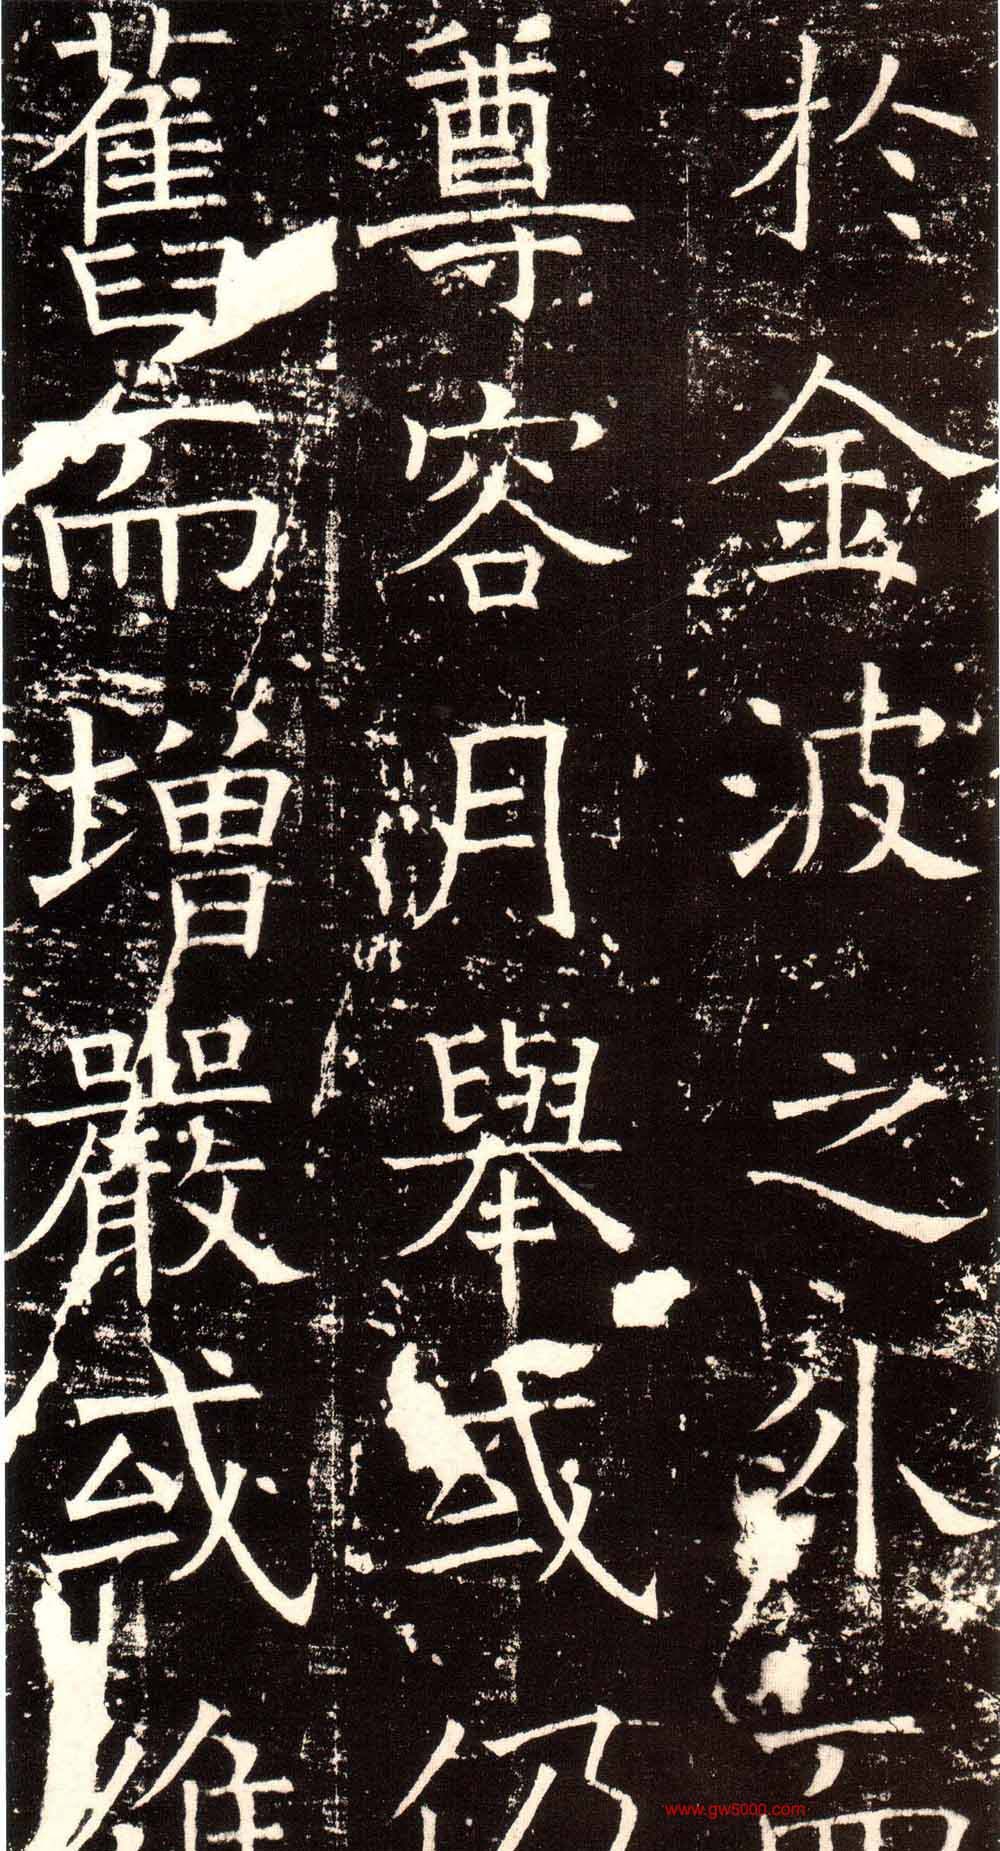 於金波之外而
尊容月舉或仍
舊而增嚴或維
www.gw5000.com